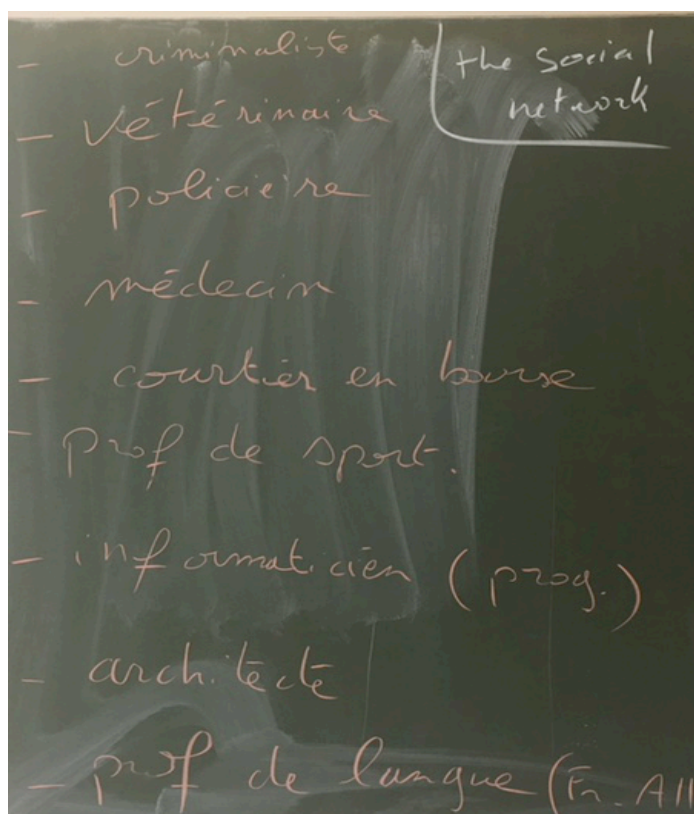 - criminaliste
the social
network
- vétérinaire
- policière
- médecin
- courtier en bourse
- prof de sport.
- informaticien (prog.)
- architecte
- prof de langue (Fr. All